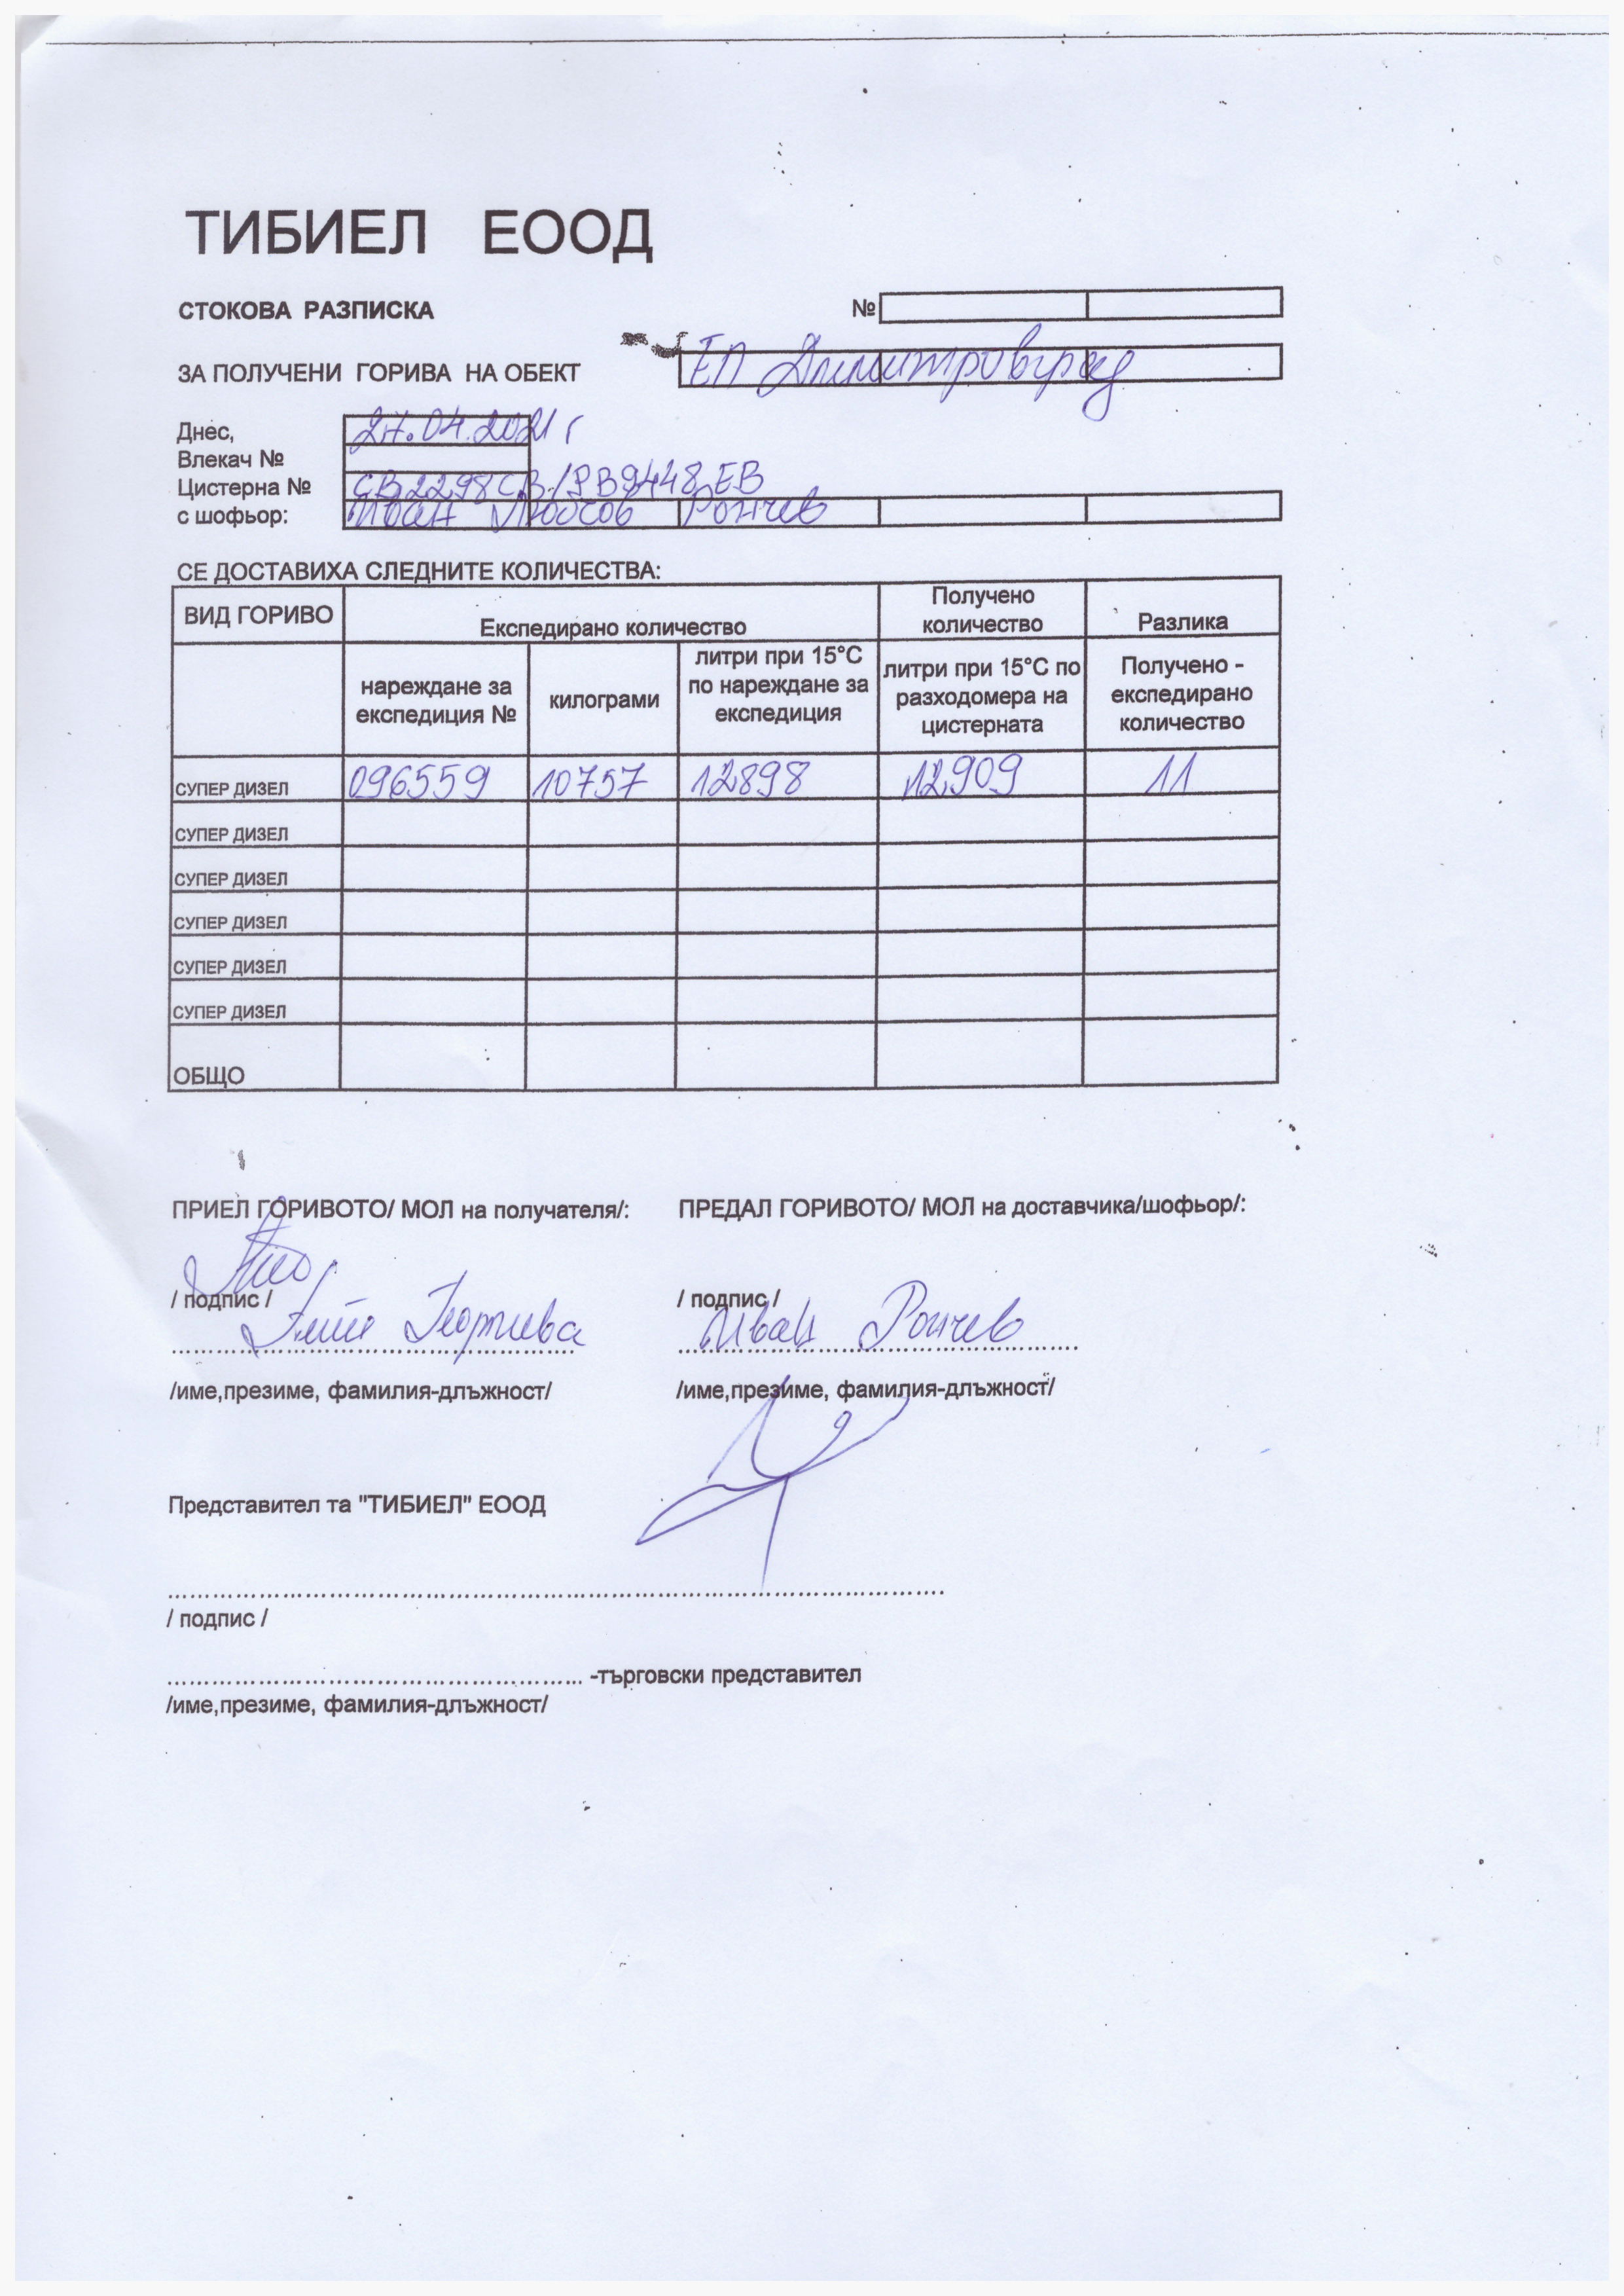 ТИБИЕЛ ЕООД
СТОКОВА РАЗПИСКА №
ЗА ПОЛУЧЕНИ ГОРИВА НА ОБЕКТ ЕП Димитровград
Днес, 27.04.2021 г
Влекач №
Цистерна № СВ2298СВ/РВ9448 ЕВ
с шофьор: Иван Рончев
СЕ ДОСТАВИХА СЛЕДНИТЕ КОЛИЧЕСТВА:
ВИД ГОРИВО Експедирано количество Получено количество Разлика
нареждане за експедиция № килограми литри при 15°C по нареждане за експедиция литри при 15°C по разходомера на цистерната Получено - експедирано количество
СУПЕР ДИЗЕЛ 096559 10757 12898 12909 11
СУПЕР ДИЗЕЛ
СУПЕР ДИЗЕЛ
СУПЕР ДИЗЕЛ
СУПЕР ДИЗЕЛ
СУПЕР ДИЗЕЛ
ОБЩО
ПРИЕЛ ГОРИВОТО/ МОЛ на получателя/: ПРЕДАЛ ГОРИВОТО/ МОЛ на доставчика/шофьор/:
/ подпис / / подпис /
Георгиева Иван Рончев
/име,презиме, фамилия-длъжност/ /име,презиме, фамилия-длъжност/
Представител та "ТИБИЕЛ" ЕООД
/ подпис /
-търговски представител
/име,презиме, фамилия-длъжност/